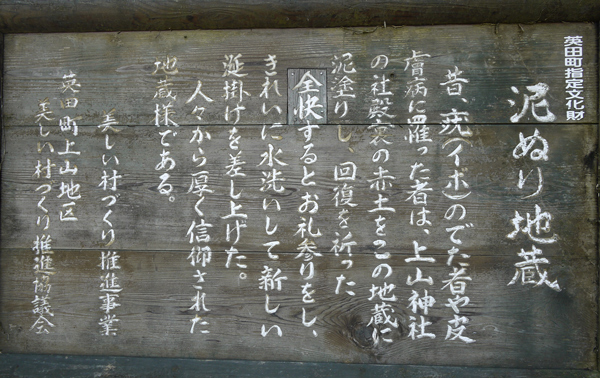 英田町指定文化財
泥ぬり地蔵
昔、疣(イボ)のでた者や皮
膚病に罹った者は、上山神社
の社殿裏の赤土をこの地蔵に
泥塗りし、回復を祈った
全快するとお礼参りをし、
きれいに水洗いして新しい
涎掛けを差し上げた。
人々から厚く信仰された
地蔵様である。
美しい村づくり推進事業
英田町上山地区
美しい村づくり推進協議会